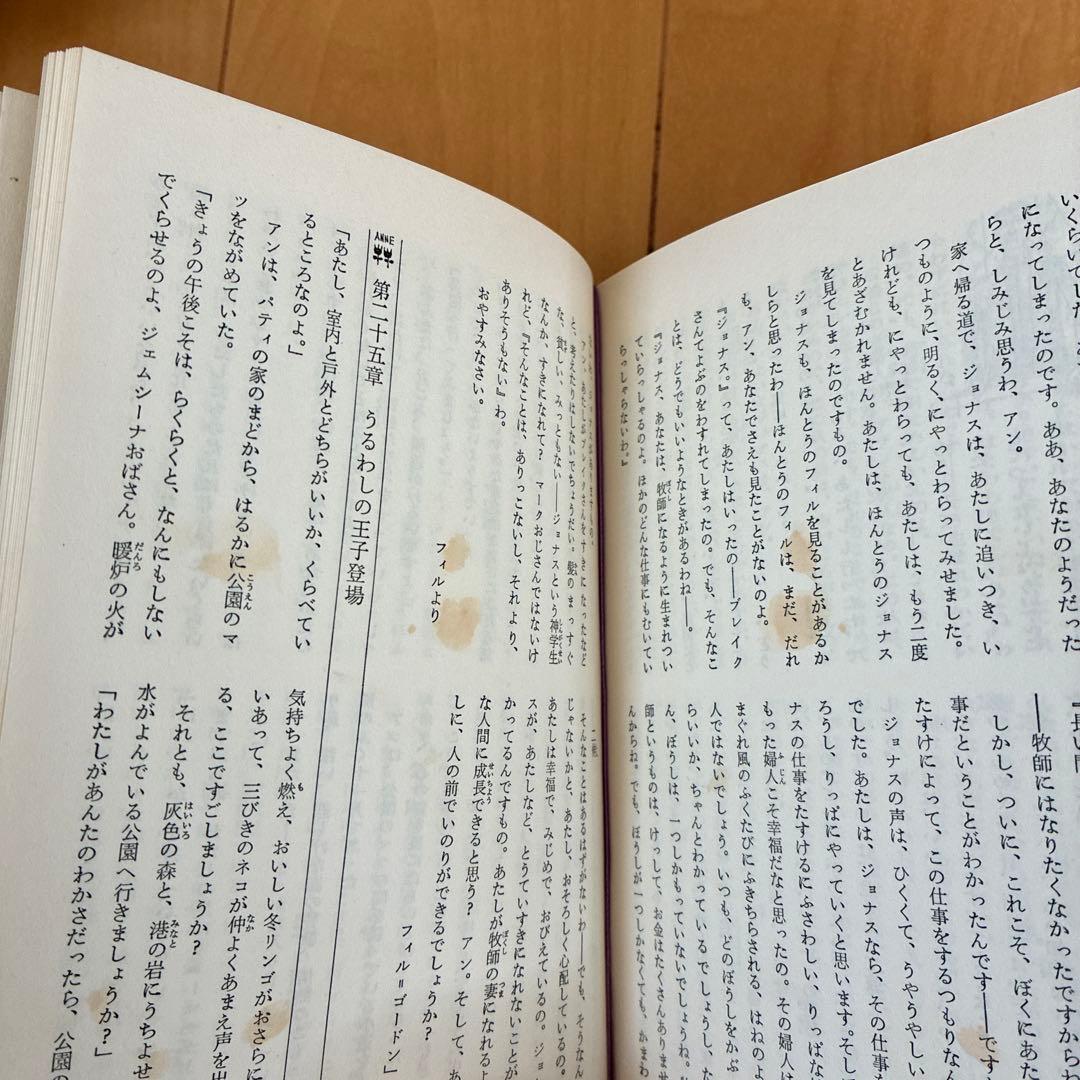 いくらいでした。
になってしまったのです。ああ、あなたのようだった
らと、しみじみ思うわ、アン。
家へ帰る道で、ジョナスは、あたしに追いつき、い
つものように、明るく、にやっとわらってみせました。
けれども、にやっとわらっても、あたしは、もう二度
とあざむかれません。あたしは、ほんとうのジョナス
を見てしまったのですもの。
ジョナスも、ほんとうのフィルを見ることがあるか
しらと思ったわ──ほんとうのフィルは、まだ、だれ
も、アン、あなたでさえも見たことがないのよ。
『ジョナス。』って、あたしはいったの──ブレイク
さんてよぶのをわすれてしまったの。でも、そんなこ
とは、どうでもいいようなときがあるわね──。
『ジョナス、あなたは、牧師になるように生まれつい
ていらっしゃるのよ。ほかのどんな仕事にもむいてい
らっしゃらないわ。』
『長い間
──牧師にはなりたくなかったですからね
しかし、ついに、これこそ、ぼくにあた
事だということがわかったんです──です
たすけによって、この仕事をするつもりなん
ジョナスの声は、ひくくて、うやうやしい
でした。あたしは、ジョナスなら、その仕事
ろうし、りっぱにやっていくと思います。そし
ナスの仕事をたすけるにふさわしい、りっぱな
もった婦人こそ幸福だなと思ったの。その婦人は
まぐれ風のふくたびにふきちらされる、はねのよ
人ではないでしょう。いつも、どのぼうしをかぶ
らいいか、ちゃんとわかっているでしょうし、た
ん、ぼうしは、一つしかもっていないでしょうね。
師というものは、けっして、お金はたくさんありませ
んからね。でも、ぼうしが一つしかなくても、かまわ
と、考えたりはしないでちょうだい。髪のまっすぐ
な、貧しい、みっともない──ジョナスという神学生
なんか、すきになれて? マークおじさんではないけ
れど、『そんなことは、ありっこないし、それより、
ありそうもない』わ。
おやすみなさい。
フィルより
ANNE 第二十五章 うるわしの王子登場
「あたし、室内と戸外とどちらがいいか、くらべてい
るところなのよ。」
アンは、パティの家のまどから、はるかに公園のマ
ツをながめていた。
「きょうの午後こそは、らくらくと、なんにもしない
でくらせるのよ、ジェムシーナおばさん。暖炉の火が
そんなことはあるはずがないわ──でも、そうなん
じゃないかと、あたし、おそろしく心配しているの。
あたしは幸福で、みじめで、おびえているの。ジョナ
スが、あたしなど、とうていすきになれないことが
かってるんですもの。あたしが牧師の妻になれるよ
な人間に成長できると思う? アン。そして、
しに、人の前でいのりができるでしょうか?
フィル=ゴードン」
気持ちよく燃え、おいしい冬リンゴがおさらに
いあって、三びきのネコが仲よくあまえ声を出
る、ここですごしましょうか?
それとも、灰色の森と、港の岩にうちよせ
水がよんでいる公園へ行きましょうか?」
「わたしがあんたのわかさだったら、公園の